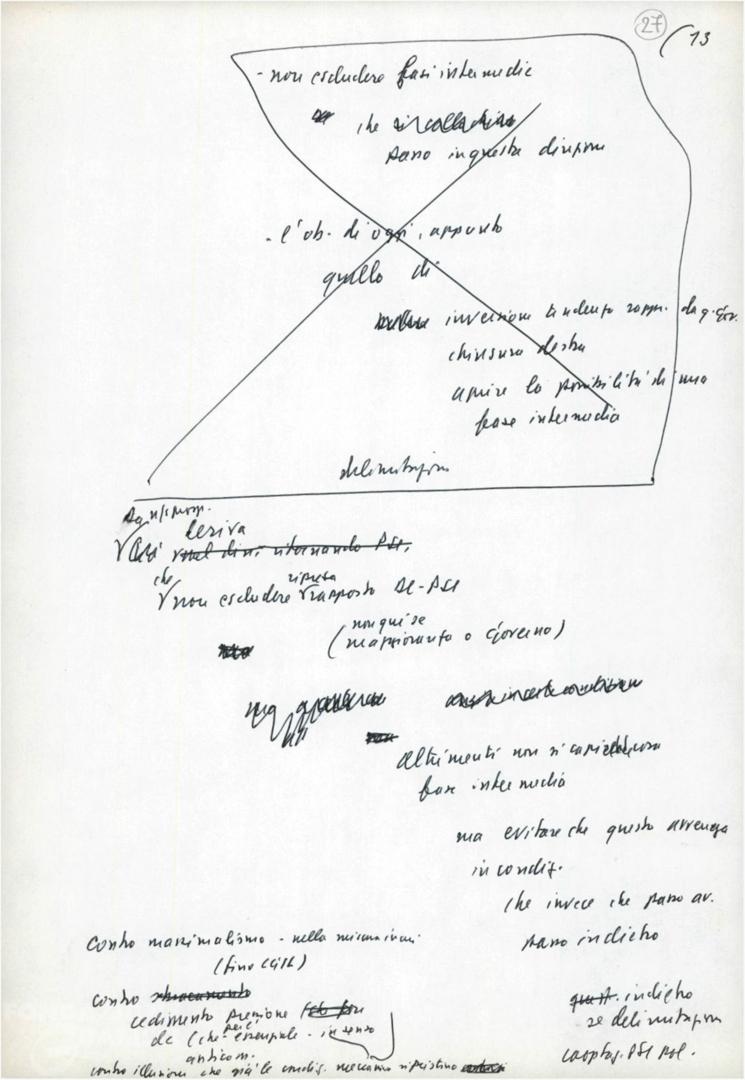 27
13
- non escludere fasi intermedie
che si collochino
passo in questa direzione
- l'ob. di oggi, appunto
quello di
inversione tendenza rappr. da q. gov.
chiusura destra
aprire la possibilità di una
fase intermedia
delimitazione
deriva
Così
che
non escludere ripresa rapporto DC-PSI
non qui se
(maggioranza o Governo)
ma
altrimenti non si capirebbe cosa
fase intermedia
ma evitare che questo avvenga
in condiz.
che invece che passo av.
passo indietro
Contro massimalismo - nella misura in cui
(fino CISL)
contro
cedimento pressione
dc (che perciò essenziale - in senso
anticom.
contro illusioni che già le condiz. meccanico ripristino
indietro
se delimitazione
cooptaz. PSI pol.